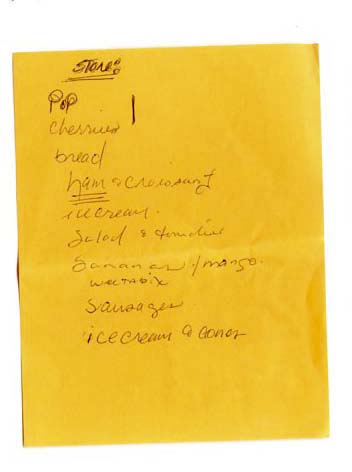 Store:
Pop
cherries
bread
ham & croissant
ice cream.
Salad & tomatoe
Bananas / mango.
weetabix
Sausages
ice cream & cones